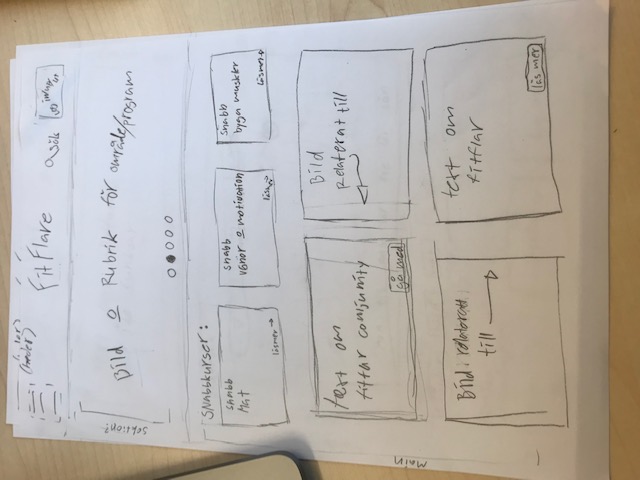 (header)
FitFlare
Sök
Sektion?
Bild o Rubrik för område/program
Main
Snabbkurser:
snabb
Mat
läsmer→
snabb
vänor o motivation
läsmer→
snabb
byga muskler
läsmer→
text om
fitflar comjunity
gå med
Bild
Relaterat till
Bild relaterat
till
text om
fitflar
läs mer